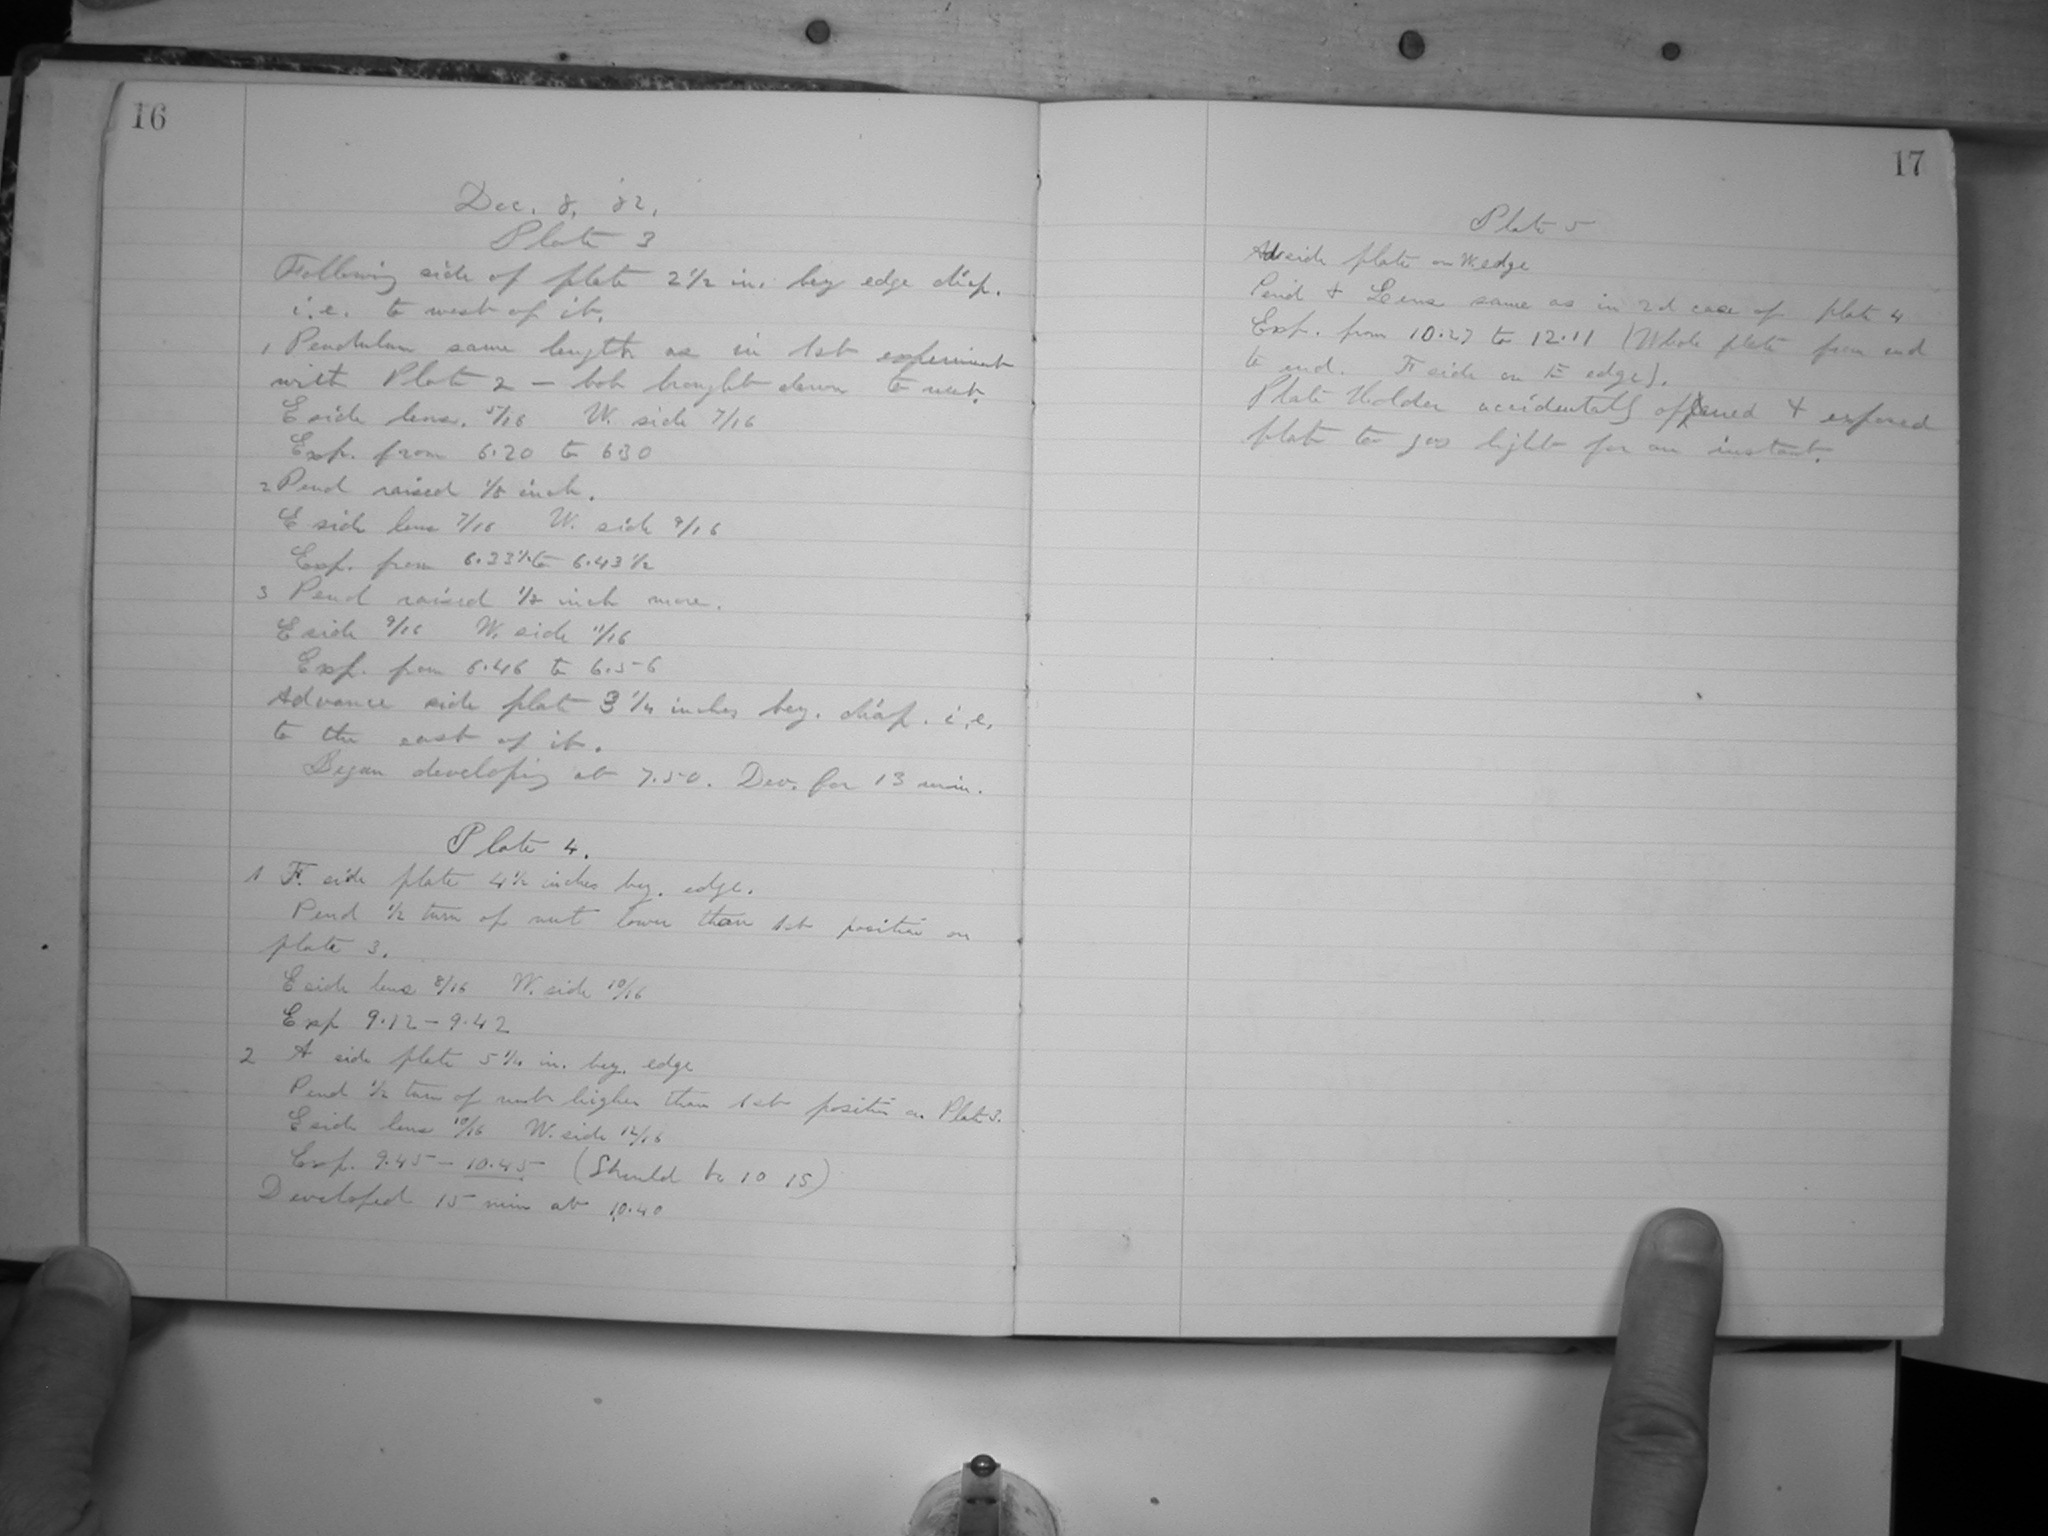 16
Dec. 8, '82.
Plate 3
Following side of plate 2 1/2 in. bey edge diap.
i.e. to west of it.
1 Pendulum same length as in 1st experiment
with Plate 2 — bob brought down to nut.
E side lens. 5/16 W. side 7/16
Exp. from 6.20 to 6.30
2 Pend raised 1/8 inch.
E side lens 7/16 W. side 9/16
Exp. from 6.33 1/2 to 6.43 1/2
3 Pend raised 1/8 inch more.
E side 9/16 W. side 11/16
Exp. from 6.46 to 6.56
Advance side plate 3 1/4 inches bey. diap. i.e.
to the east of it.
Began developing at 7.50. Dev. for 13 min.
Plate 4.
1 F. side plate 4 1/2 inches bey. edge.
Pend 1/2 turn of nut lower than 1st position on
plate 3.
E side lens 8/16 W. side 10/16
Exp 9.12 – 9.42
2 A side plate 5 1/4 in. bey. edge
Pend 1/2 turn of nut higher than 1st position on Plate 3.
E side lens 10/16 W. side 12/16
Exp. 9.45 – 10.45 (Should be 10 15)
Developed 15 min at 10.40
17
Plate 5
Ad side plate on W. edge
Pend & Lens same as in 2d case of plate 4
Exp. from 10.27 to 12.11 (Whole plate from end
to end. F side on E edge).
Plate Holder accidentally opened & exposed
plate to gas light for an instant.